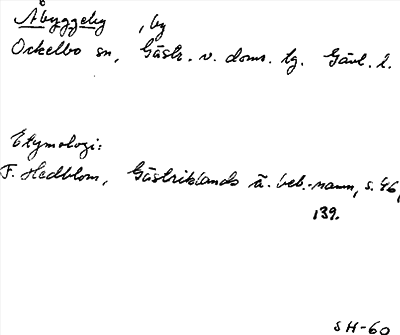 Åbyggeby , by
Ockelbo sn, Gästr. v. doms. lg. Gävl. l.
Etymologi:
F. Hedblom, Gästriklands ä. beb.-namn, s. 46,
139.
SH-60